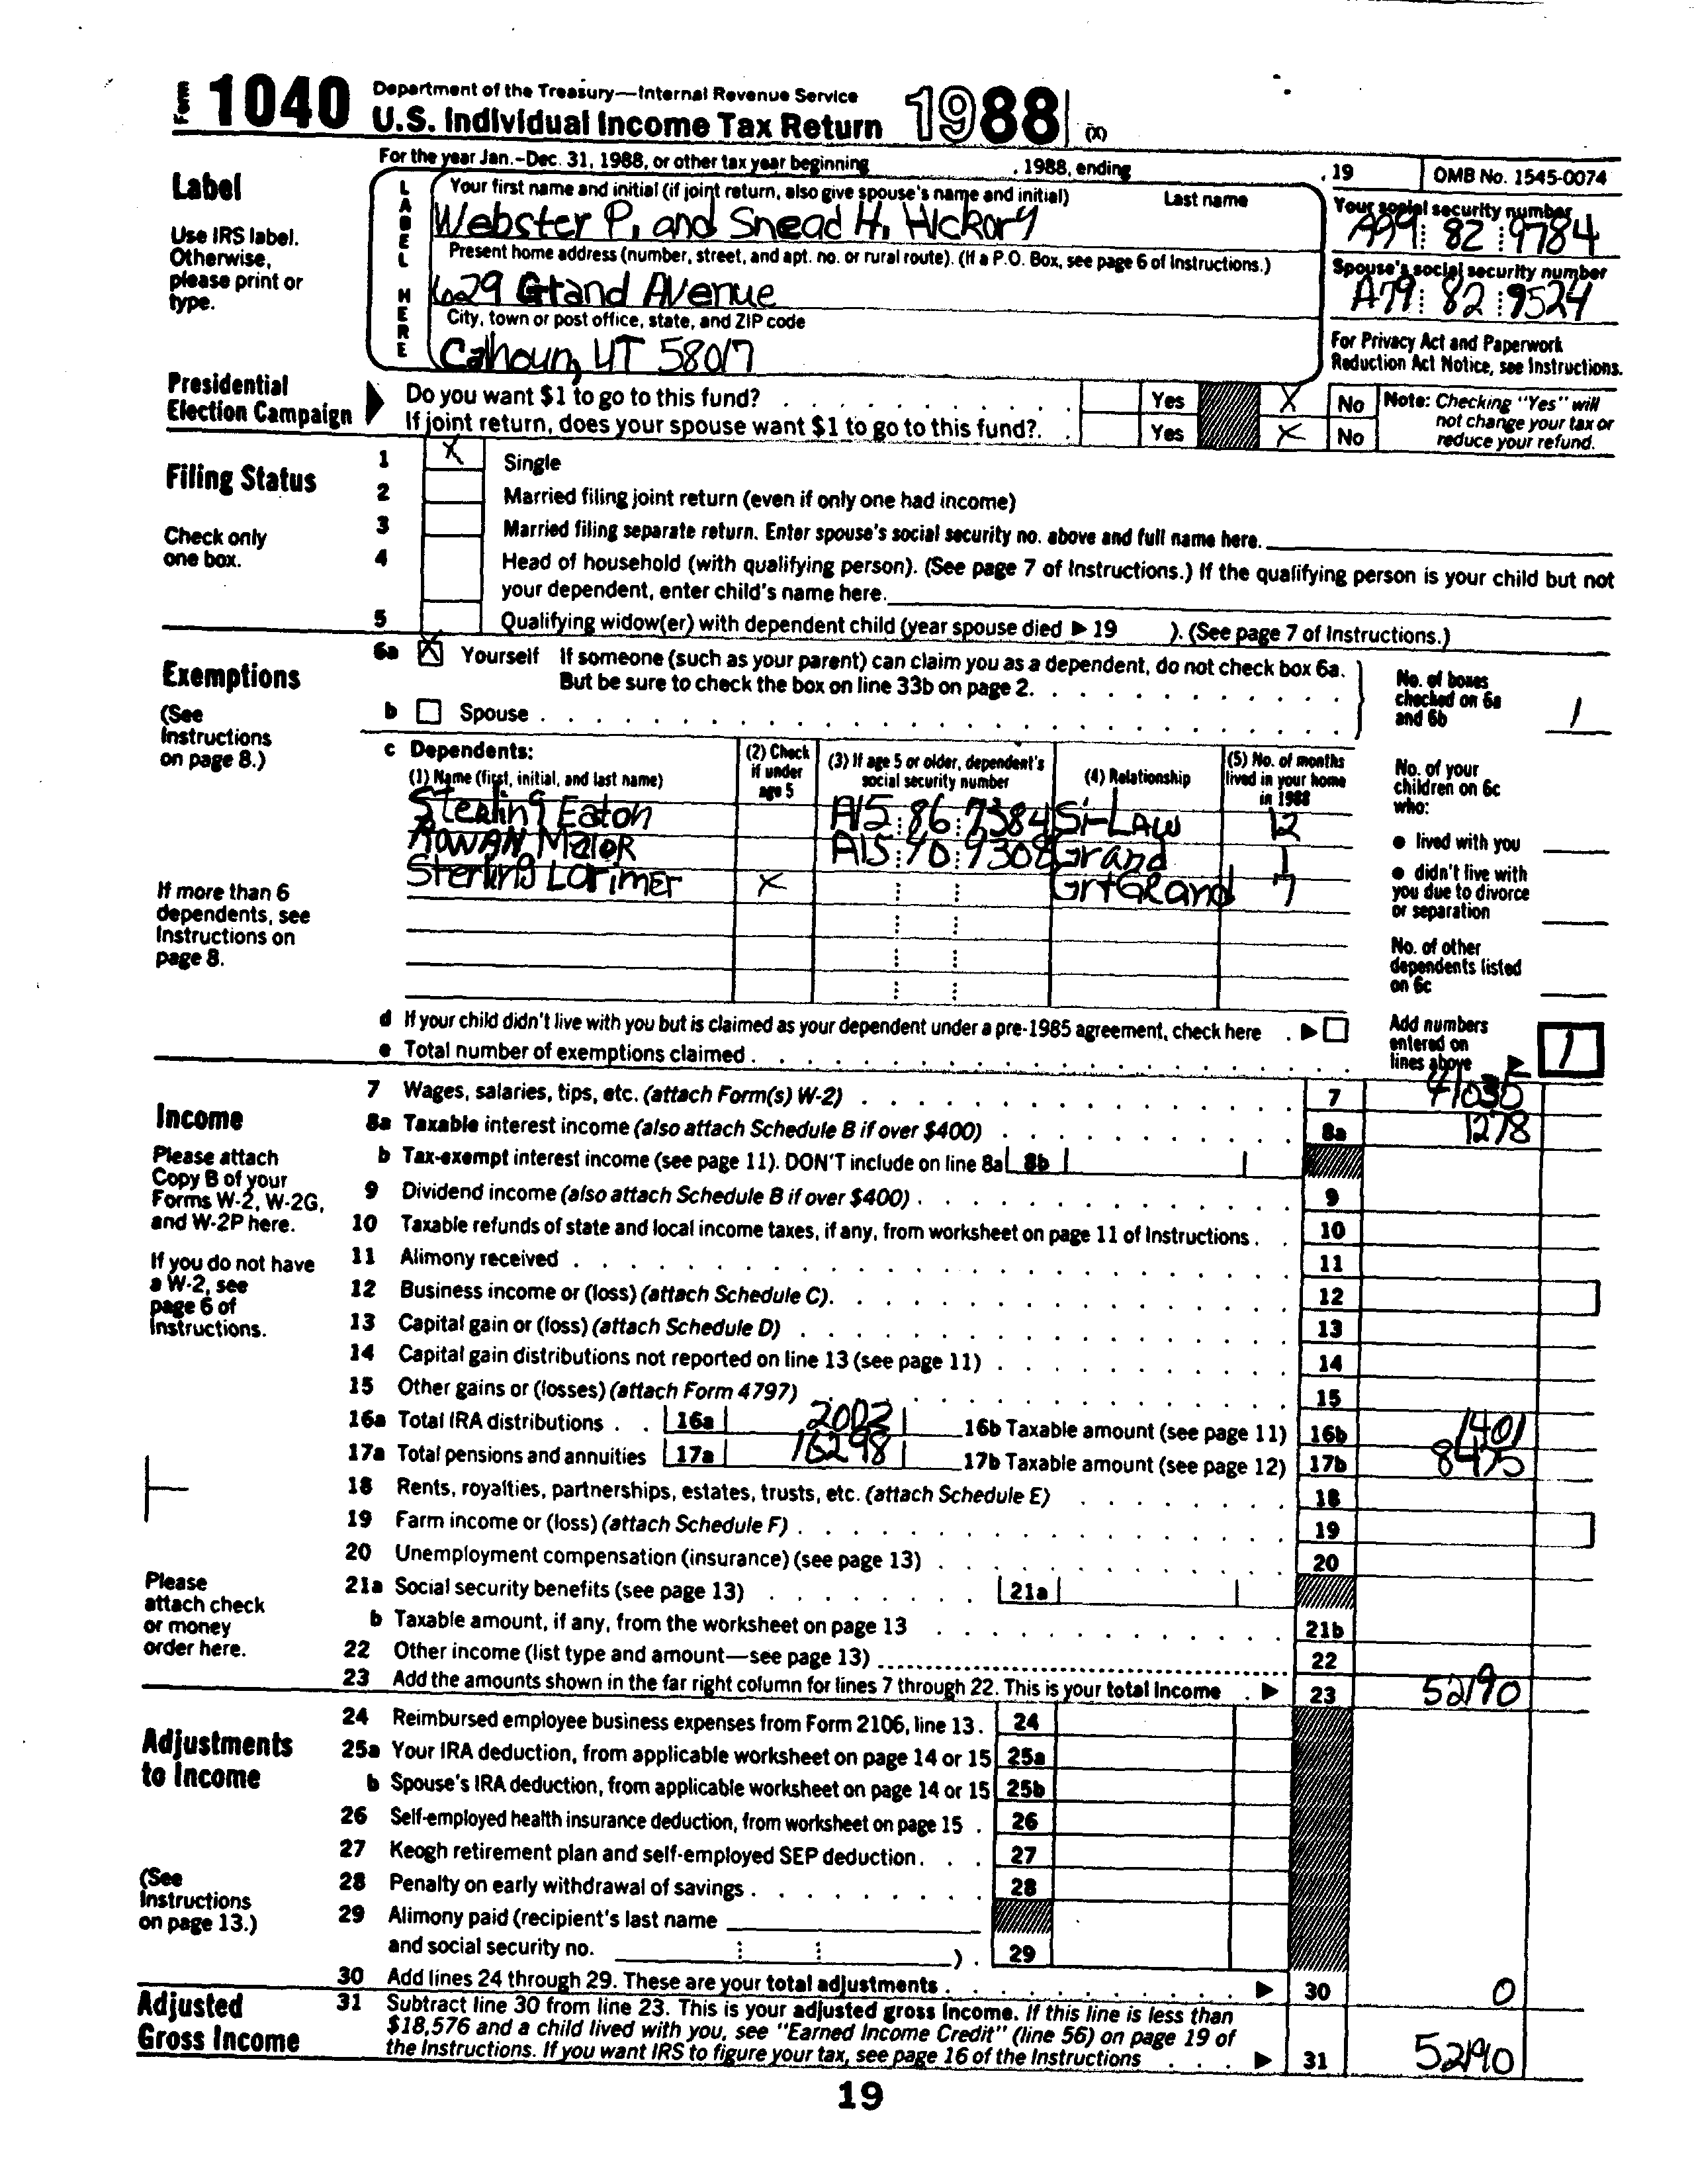 Form 1040 Department of the Treasury—Internal Revenue Service
U.S. Individual Income Tax Return 1988 (X)
For the year Jan.–Dec. 31, 1988, or other tax year beginning , 1988, ending , 19 OMB No. 1545-0074
Label
Use IRS label.
Otherwise,
please print or
type.
LABEL HERE
Your first name and initial (if joint return, also give spouse's name and initial) Last name
Webster P. and Snead H. Hickory
Your social security number
A99 : 82 : 9784
Present home address (number, street, and apt. no. or rural route). (If a P.O. Box, see page 6 of Instructions.)
1629 Grand Avenue
Spouse's social security number
A79 : 82 : 9524
City, town or post office, state, and ZIP code
Calhoun, UT 58017
For Privacy Act and Paperwork
Reduction Act Notice, see Instructions.
Presidential
Election Campaign
Do you want $1 to go to this fund? Yes X No
If joint return, does your spouse want $1 to go to this fund? Yes X No
Note: Checking "Yes" will
not change your tax or
reduce your refund.
Filing Status
Check only
one box.
1 X Single
2 Married filing joint return (even if only one had income)
3 Married filing separate return. Enter spouse's social security no. above and full name here.
4 Head of household (with qualifying person). (See page 7 of Instructions.) If the qualifying person is your child but not
your dependent, enter child's name here.
5 Qualifying widow(er) with dependent child (year spouse died ▶ 19 ). (See page 7 of Instructions.)
Exemptions
(See
Instructions
on page 8.)
6a X Yourself If someone (such as your parent) can claim you as a dependent, do not check box 6a.
But be sure to check the box on line 33b on page 2.
b Spouse
No. of boxes
checked on 6a
and 6b 1
c Dependents:
(1) Name (first, initial, and last name)
(2) Check
if under
age 5
(3) If age 5 or older, dependent's
social security number
(4) Relationship
(5) No. of months
lived in your home
in 1988
Sterling Eaton A15 : 86 : 7384 Si-Law 12
Rowan Major A15 : 70 : 9308 Grand 1
Sterling Lorimer X GrtGRand 7
If more than 6
dependents, see
Instructions on
page 8.
No. of your
children on 6c
who:
● lived with you
● didn't live with
you due to divorce
or separation
No. of other
dependents listed
on 6c
d If your child didn't live with you but is claimed as your dependent under a pre-1985 agreement, check here ▶
e Total number of exemptions claimed
Add numbers
entered on
lines above ▶ 1
Income
Please attach
Copy B of your
Forms W-2, W-2G,
and W-2P here.
If you do not have
a W-2, see
page 6 of
Instructions.
Please
attach check
or money
order here.
7 Wages, salaries, tips, etc. (attach Form(s) W-2) 7 41036
8a Taxable interest income (also attach Schedule B if over $400) 8a 1278
b Tax-exempt interest income (see page 11). DON'T include on line 8a 8b
9 Dividend income (also attach Schedule B if over $400) 9
10 Taxable refunds of state and local income taxes, if any, from worksheet on page 11 of Instructions 10
11 Alimony received 11
12 Business income or (loss) (attach Schedule C) 12
13 Capital gain or (loss) (attach Schedule D) 13
14 Capital gain distributions not reported on line 13 (see page 11) 14
15 Other gains or (losses) (attach Form 4797) 15
16a Total IRA distributions 16a 2002 16b Taxable amount (see page 11) 16b 1401
17a Total pensions and annuities 17a 16298 17b Taxable amount (see page 12) 17b 8475
18 Rents, royalties, partnerships, estates, trusts, etc. (attach Schedule E) 18
19 Farm income or (loss) (attach Schedule F) 19
20 Unemployment compensation (insurance) (see page 13) 20
21a Social security benefits (see page 13) 21a
b Taxable amount, if any, from the worksheet on page 13 21b
22 Other income (list type and amount—see page 13) 22
23 Add the amounts shown in the far right column for lines 7 through 22. This is your total income ▶ 23 52190
Adjustments
to Income
(See
Instructions
on page 13.)
24 Reimbursed employee business expenses from Form 2106, line 13. 24
25a Your IRA deduction, from applicable worksheet on page 14 or 15 25a
b Spouse's IRA deduction, from applicable worksheet on page 14 or 15 25b
26 Self-employed health insurance deduction, from worksheet on page 15 26
27 Keogh retirement plan and self-employed SEP deduction 27
28 Penalty on early withdrawal of savings 28
29 Alimony paid (recipient's last name
and social security no. ) 29
30 Add lines 24 through 29. These are your total adjustments ▶ 30 0
Adjusted
Gross Income
31 Subtract line 30 from line 23. This is your adjusted gross income. If this line is less than
$18,576 and a child lived with you, see "Earned Income Credit" (line 56) on page 19 of
the Instructions. If you want IRS to figure your tax, see page 16 of the Instructions ▶ 31 52190
19